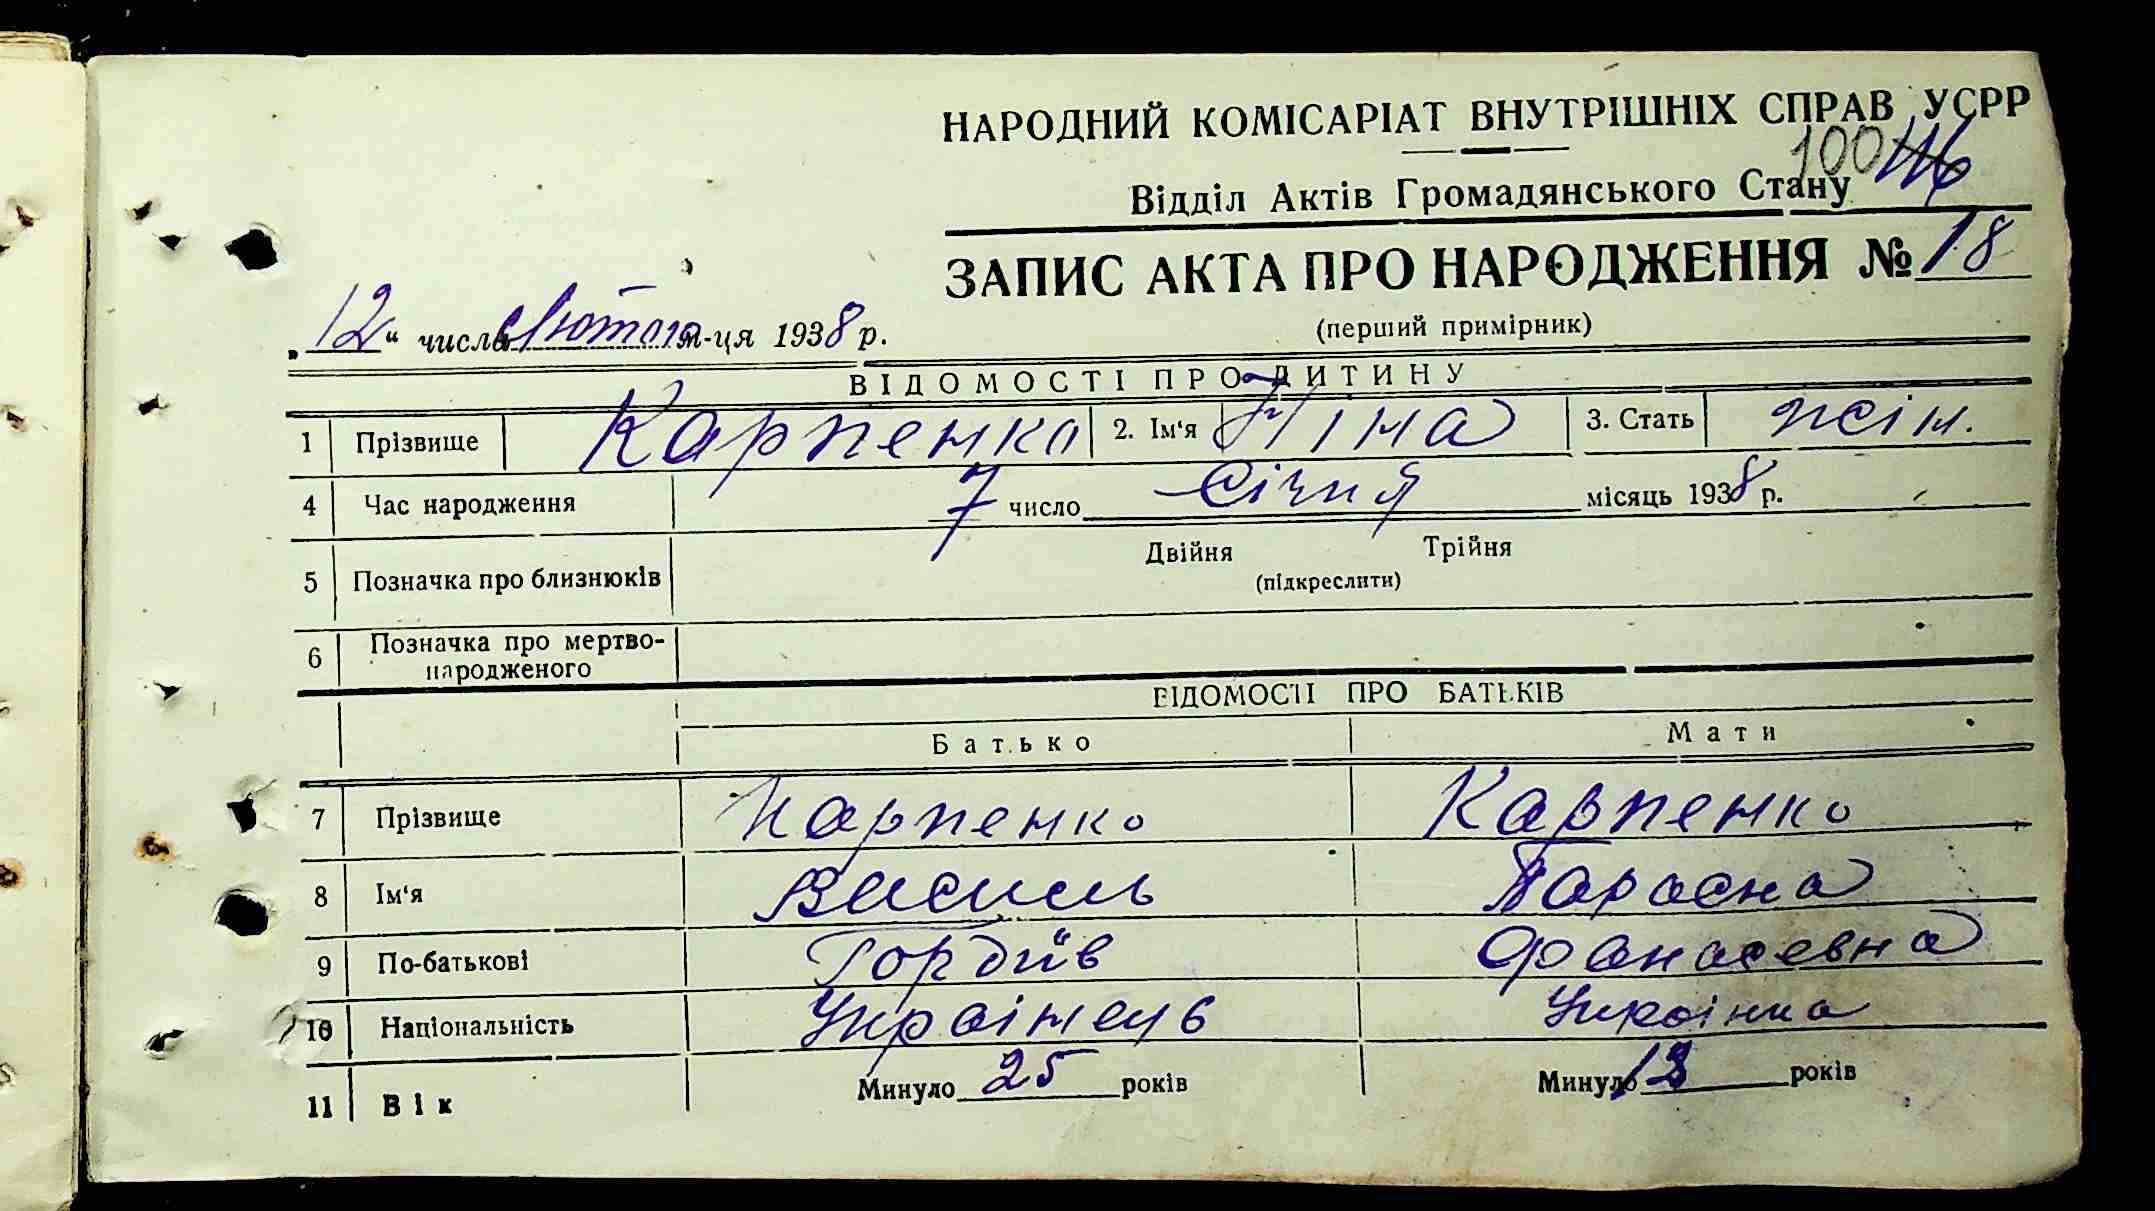 НАРОДНИЙ КОМІСАРІАТ ВНУТРІШНІХ СПРАВ УСРР
100 116
Відділ Актів Громадянського Стану
ЗАПИС АКТА ПРО НАРОДЖЕННЯ № 18
(перший примірник)
„12“ числа Лютого м-ця 1938 р.
ВІДОМОСТІ ПРО ДИТИНУ
1 Прізвище Карпенко 2. Ім'я Ніна 3. Стать жін.
4 Час народження 7 число Січня місяць 1938 р.
5 Позначка про близнюків Двійня Трійня
(підкреслити)
6 Позначка про мертво-
народженого
ВІДОМОСТІ ПРО БАТЬКІВ
Батько Мати
7 Прізвище Карпенко Карпенко
8 Ім'я Василь
9 По-батькові Гордіїв Фанасевна
10 Національність Українець Українка
11 Вік Минуло 25 років Минуло років